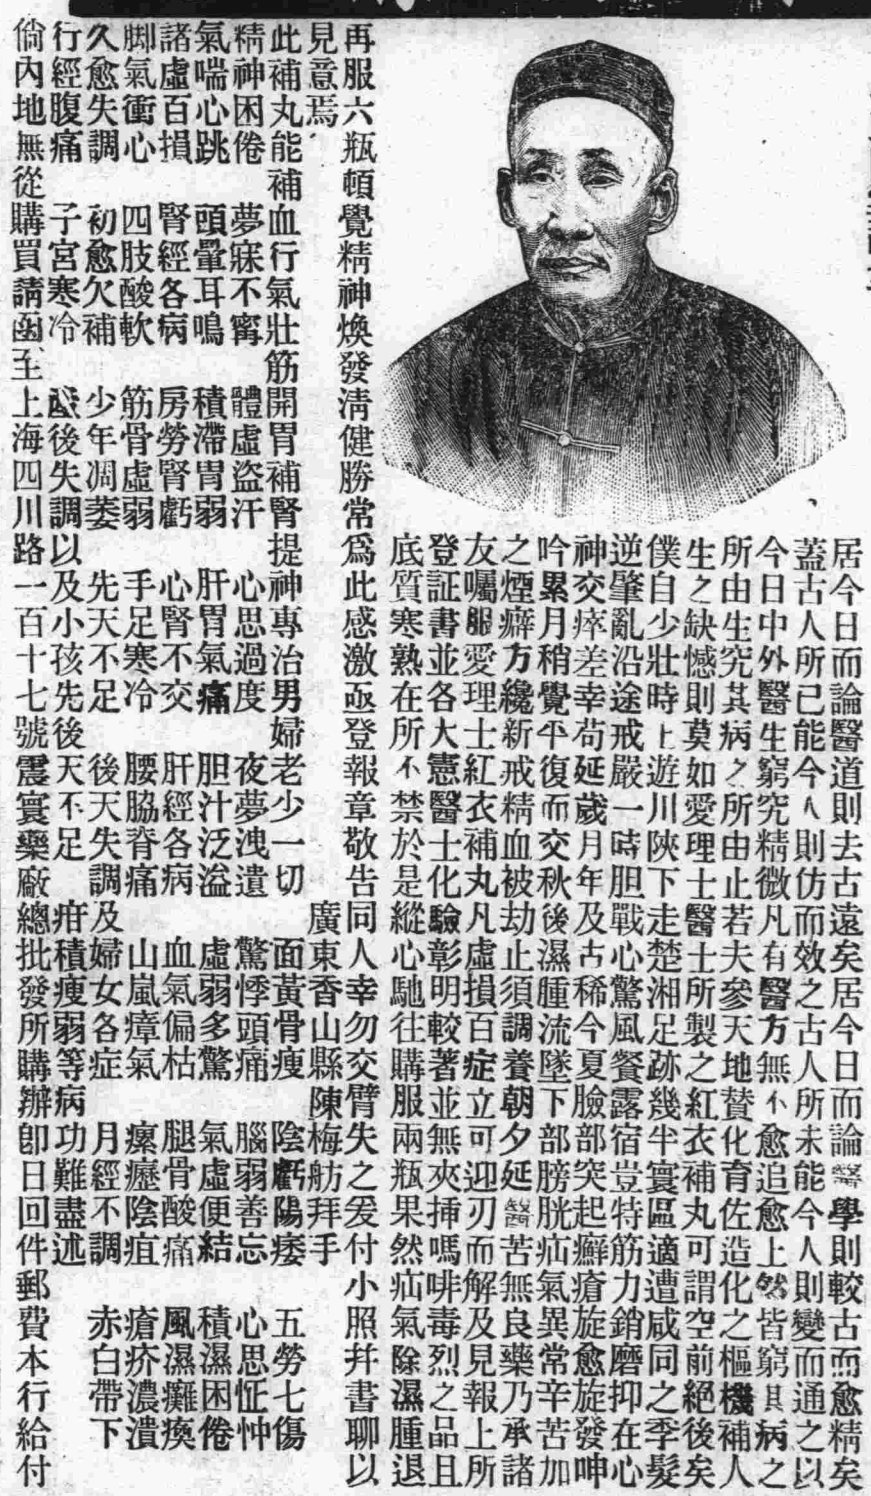 居今日而論醫道則去古遠矣居今日而論醫學則較古而愈精矣
蓋古人所已能今人則仿而效之古人所未能今人則變而通之以
今日中外醫生窮究精微凡有醫方無不愈追愈上然皆窮其病之
所由生究其病之所由止若夫參天地贊化育佐造化之樞機補人
生之缺憾則莫如愛理士醫士所製之紅衣補丸可謂空前絕後矣
僕自少壯時上遊川陝下走楚湘足跡幾半寰區適遭咸同之季髮
逆肇亂沿途戒嚴一時胆戰心驚風餐露宿豈特筋力銷磨抑在心
神交瘁差幸苟延歲月年及古稀今夏臉部突起癬瘡旋愈旋發呻
吟累月稍覺平復而交秋後濕腫流墜下部膀胱疝氣異常辛苦加
之煙癖方纔新戒精血被劫止須調養朝夕延醫苦無良藥乃承諸
友囑服愛理士紅衣補丸凡虛損百症立可迎刃而解及見報上所
登証書並各大憲醫士化驗彰明較著並無夾揷嗎啡毒烈之品且
底質寒熟在所不禁於是縱心馳往購服兩瓶果然疝氣除濕腫退
再服六瓶頓覺精神煥發淸健勝常爲此感激亟登報章敬告同人幸勿交臂失之爰付小照幷書聊以
見意焉 廣東香山縣陳梅舫拜手
此補丸能補血行氣壯筋開胃補腎提神專治男婦老少一切 面黃骨瘦 陰虧陽痿 五勞七傷
精神困倦 夢寐不甯 體虛盜汗 心思過度 夜夢洩遺 驚悸頭痛 腦弱善忘 心思怔忡
氣喘心跳 頭暈耳鳴 積滯胃弱 肝胃氣痛 胆汁泛溢 虛弱多驚 氣虛便結 積濕困倦
諸虛百損 腎經各病 房勞腎虧 心腎不交 肝經各病 血氣偏枯 腿骨酸痛 風濕癱瘓
脚氣衝心 四肢酸軟 筋骨虛弱 手足寒冷 腰脇脊痛 山嵐瘴氣 瘰癧陰疽 瘡疥濃潰
久愈失調 初愈欠補 少年凋萎 先天不足 後天失調及婦女各症 月經不調 赤白帶下
行經腹痛 子宮寒冷 後失調以及小孩先後天不足 疳積瘦弱等病功難盡述
倘內地無從購買請函至上海四川路一百十七號震寰藥廠總批發所購辦卽日回件郵費本行給付